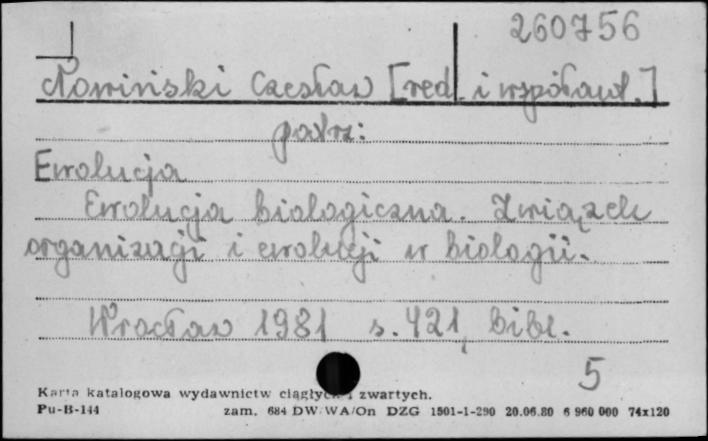 260756
Nowiński Czesław [red. i współaut.]
patrz:
Ewolucja
Ewolucja biologiczna. Związek
organizacji i ewolucji w biologii.
Wrocław 1981 s. 421, bibl.
5
Karta katalogowa wydawnictw ciągłych i zwartych.
Pu-B-144 zam. 684 DW WA/On DZG 1501-1-290 20.06.80 6 960 000 74x120